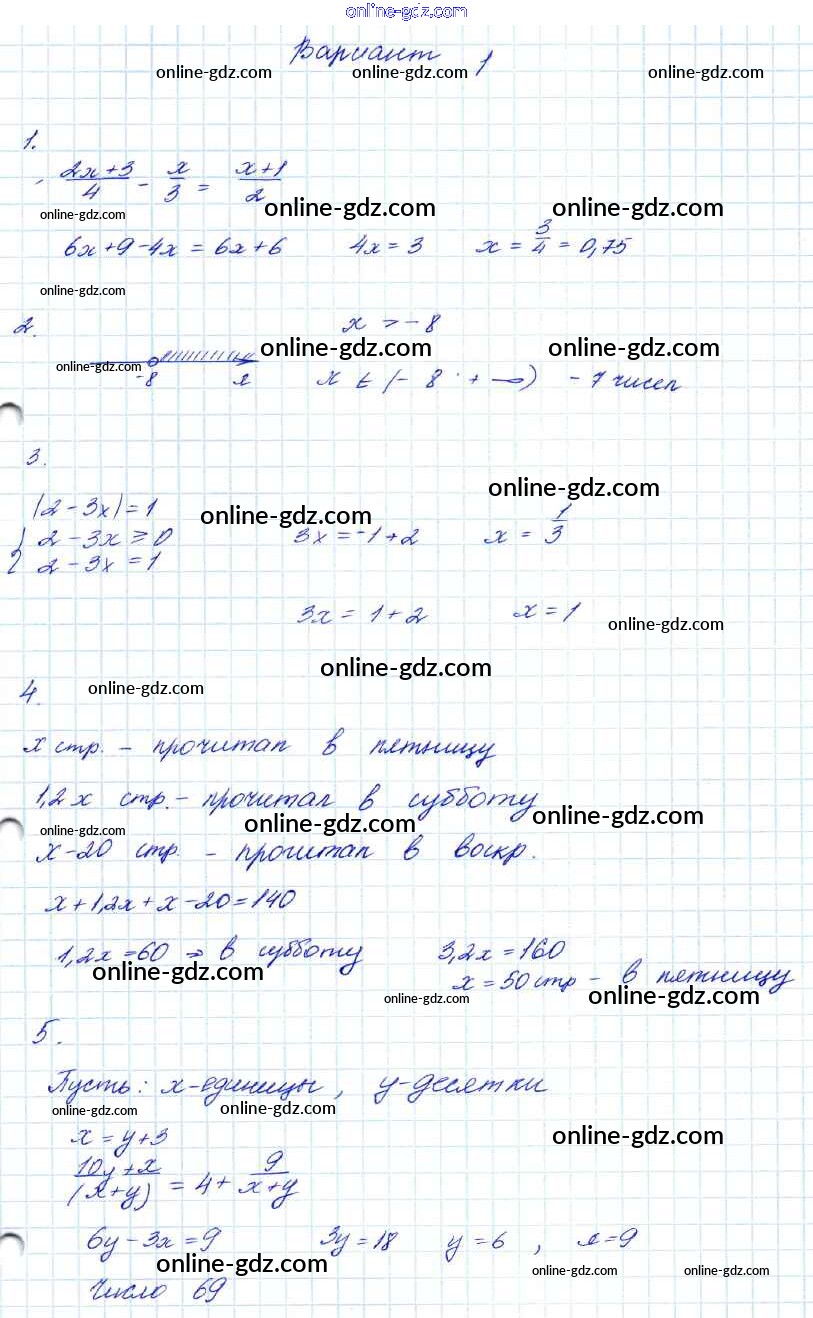 online-gdz.com
Вариант 1
online-gdz.com online-gdz.com online-gdz.com
1.
(2x+3)/4 - x/3 = (x+1)/2
online-gdz.com online-gdz.com online-gdz.com
6x+9-4x = 6x+6 4x = 3 x = 3/4 = 0,75
online-gdz.com
2. x > -8
online-gdz.com online-gdz.com online-gdz.com
-8 x x ∈ (-8 ; +∞) - 7 чисел
3.
online-gdz.com
|2-3x| = 1 online-gdz.com
{ 2-3x ≥ 0 3x = -1+2 x = 1/3
2-3x = 1
3x = 1+2 x = 1 online-gdz.com
online-gdz.com
4. online-gdz.com
x стр. - прочитал в пятницу
1,2x стр. - прочитал в субботу
online-gdz.com online-gdz.com online-gdz.com
x-20 стр. - прочитал в воскр.
x+1,2x+x-20=140
1,2x=60 ⇒ в субботу 3,2x=160
online-gdz.com x = 50 стр - в пятницу
online-gdz.com online-gdz.com
5.
Пусть: x-единицы, y-десятки
online-gdz.com online-gdz.com
x = y+3 online-gdz.com
(10y+x)/(x+y) = 4 + 9/(x+y)
6y-3x=9 3y=18 y=6 , x=9
online-gdz.com online-gdz.com online-gdz.com
Число 69
online-gdz.com